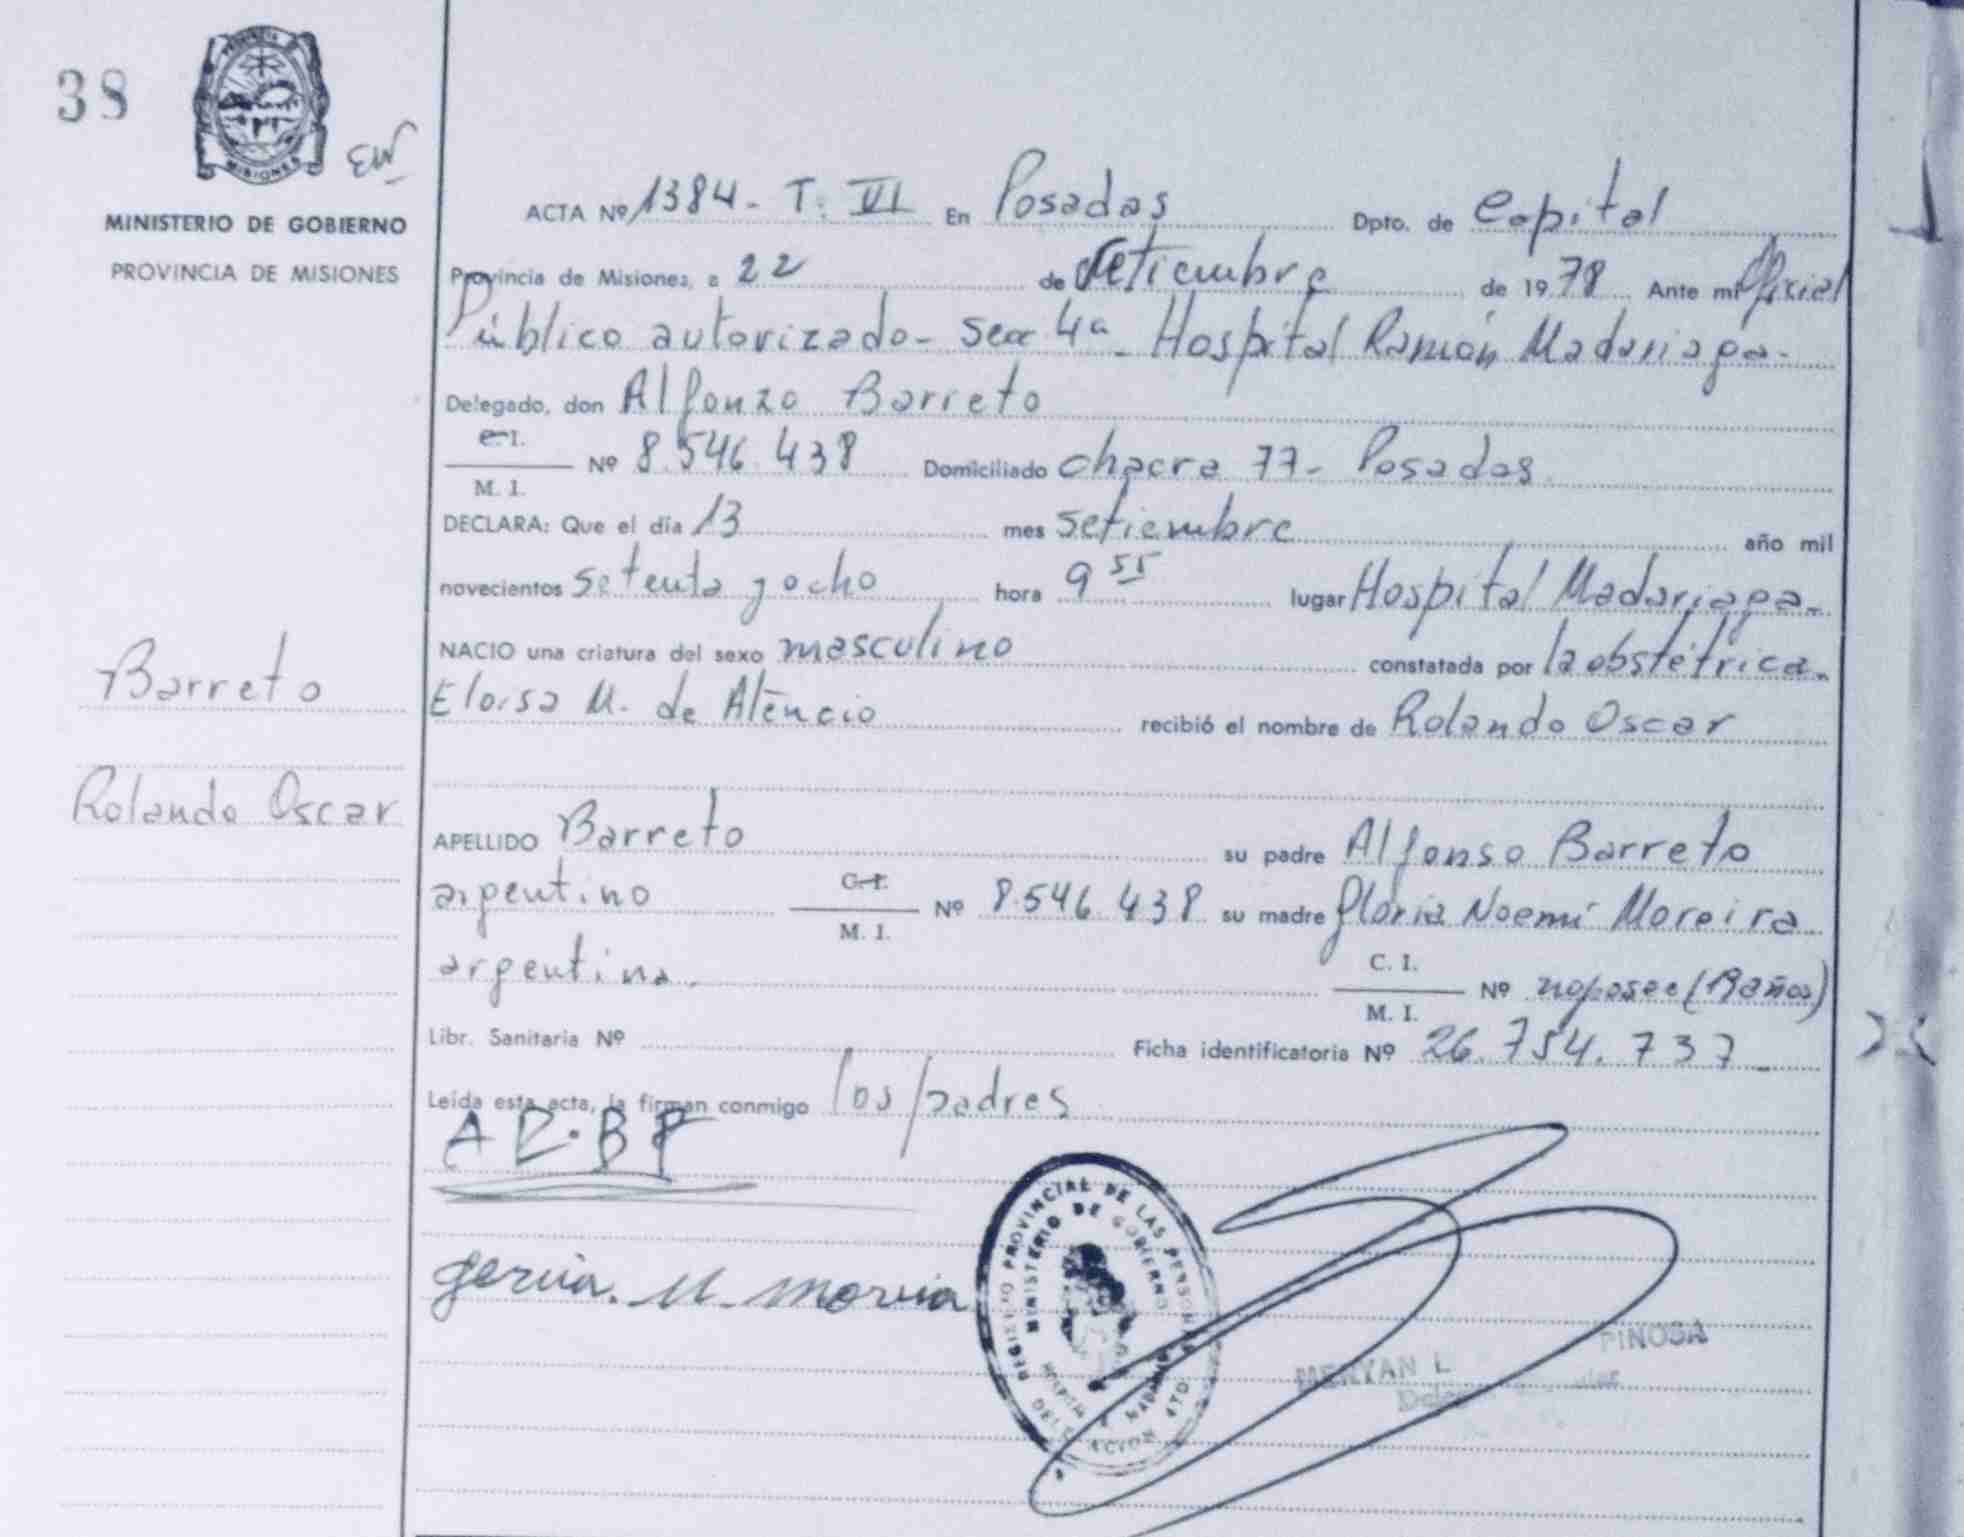 38
PROVINCIA DE
MISIONES
MINISTERIO DE GOBIERNO
PROVINCIA DE MISIONES
Barreto
Rolando Oscar
ACTA Nº 1384 - T. VI En Posadas Dpto. de Capital
Provincia de Misiones, a 22 de setiembre de 1978 Ante mí Oficial
Público autorizado - Secc 4a - Hospital Ramón Madariaga -
Delegado, don Alfonzo Barreto
C. I.
Nº 8.546.438 Domiciliado chacra 77 - Posadas
M. I.
DECLARA: Que el día 13 mes setiembre año mil
novecientos setenta y ocho hora 9 55 lugar Hospital Madariaga -
NACIO una criatura del sexo masculino constatada por la obstétrica
Eloisa M. de Atencio recibió el nombre de Rolando Oscar
APELLIDO Barreto su padre Alfonso Barreto
argentino C. I. Nº 8.546.438 su madre Gloria Noemí Moreira
M. I.
argentina. C. I. Nº no posee (19 años)
M. I.
Libr. Sanitaria Nº Ficha identificatoria Nº 26.754.737
Leída esta acta, la firman conmigo los padres
REGISTRO PROVINCIAL DE LAS PERSONAS
MINISTERIO DE GOBIERNO